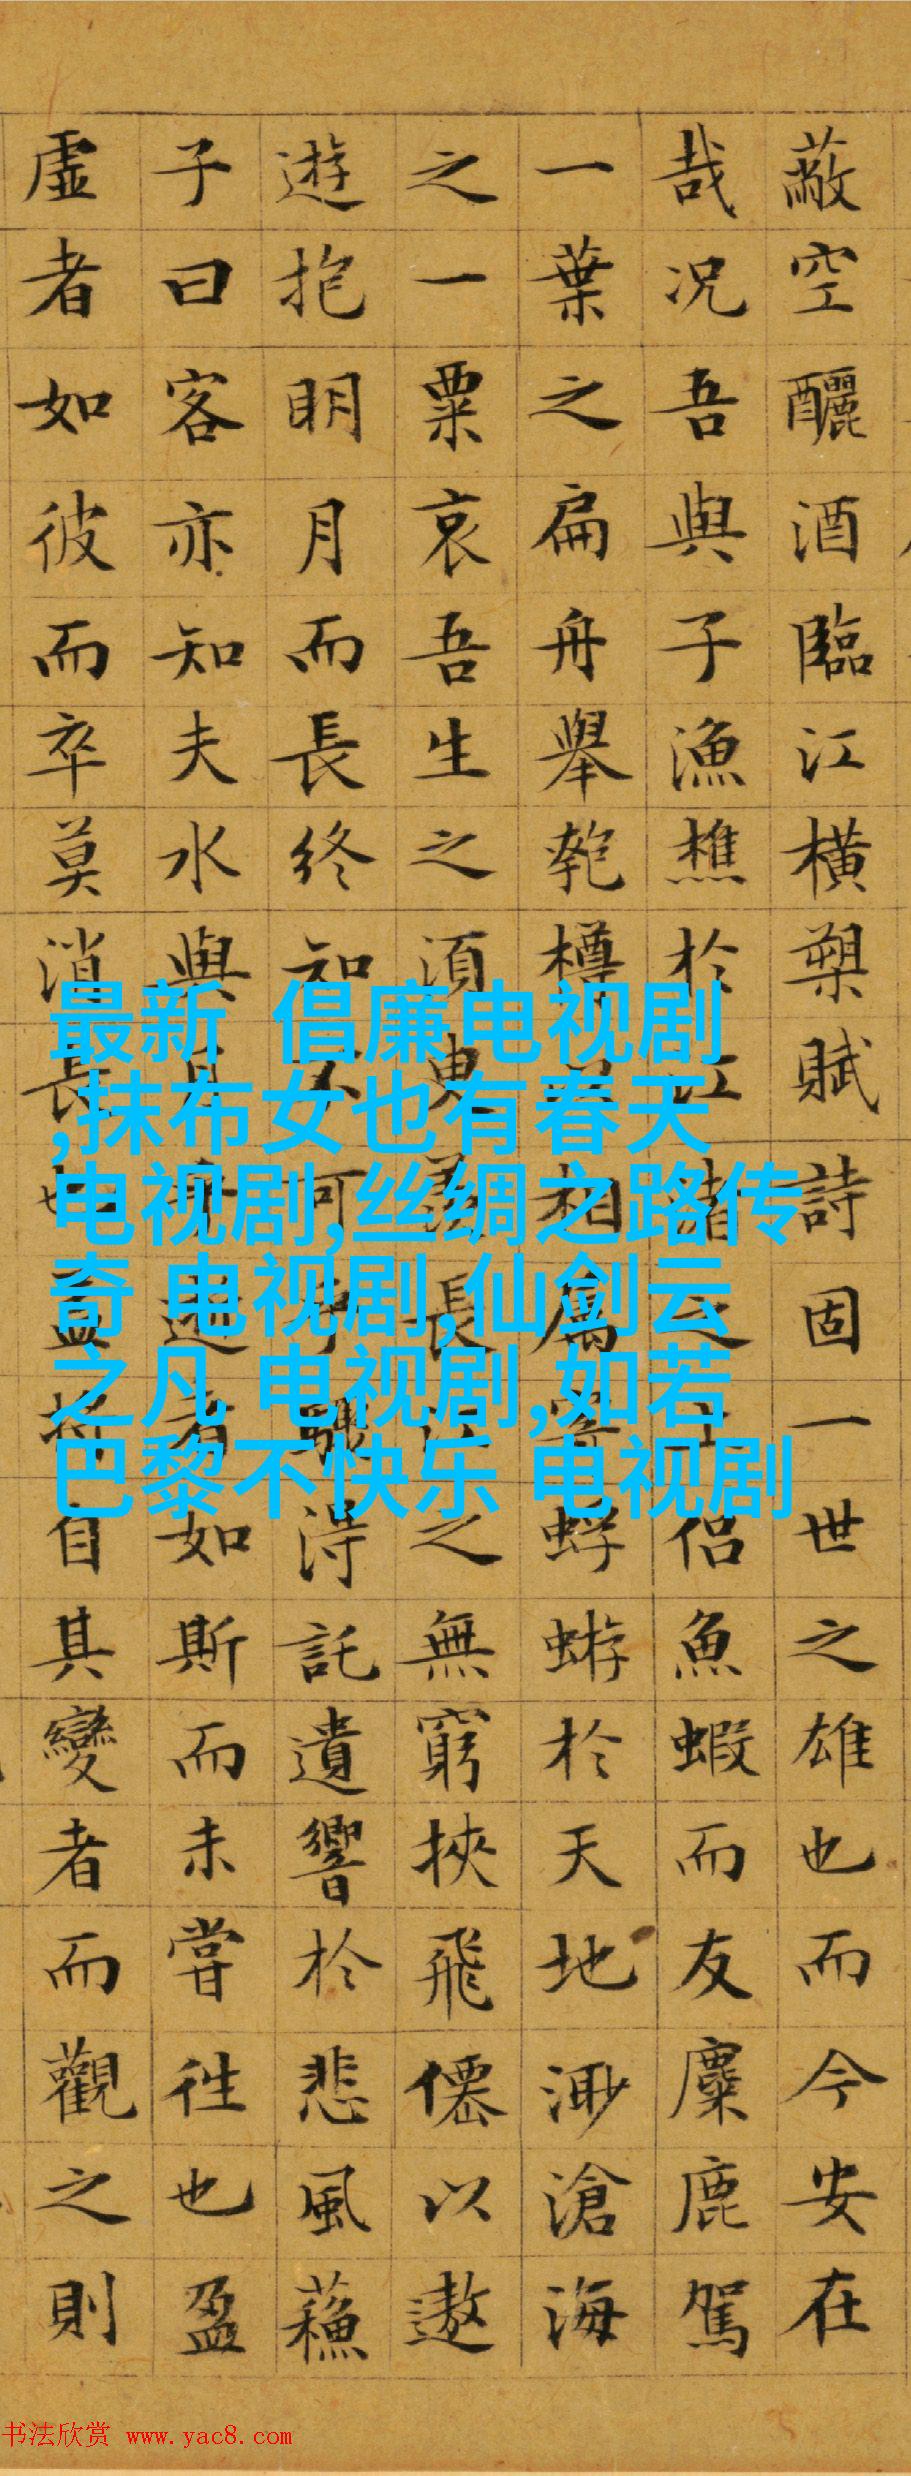 蔽空釃酒臨江橫槊賦詩固一世之雄也而今安在
哉况吾與子漁樵於江渚之上侶魚蝦而友麋鹿駕
一葉之扁舟舉匏樽以相屬寄蜉蝣於天地渺滄海
之一粟哀吾生之須臾羨長江之無窮挾飛僊以遨
遊抱明月而長終知不可乎驟得託遺響於悲風蘓
子曰客亦知夫水與月乎逝者如斯而未嘗往也盈
虛者如彼而卒莫消長也盖將自其變者而觀之則
最新 倡廉电视剧
,抹布女也有春天
电视剧,丝绸之路传
奇 电视剧,仙剑云
之凡 电视剧,如若
巴黎不快乐 电视剧
书法欣赏 www.yac8.com